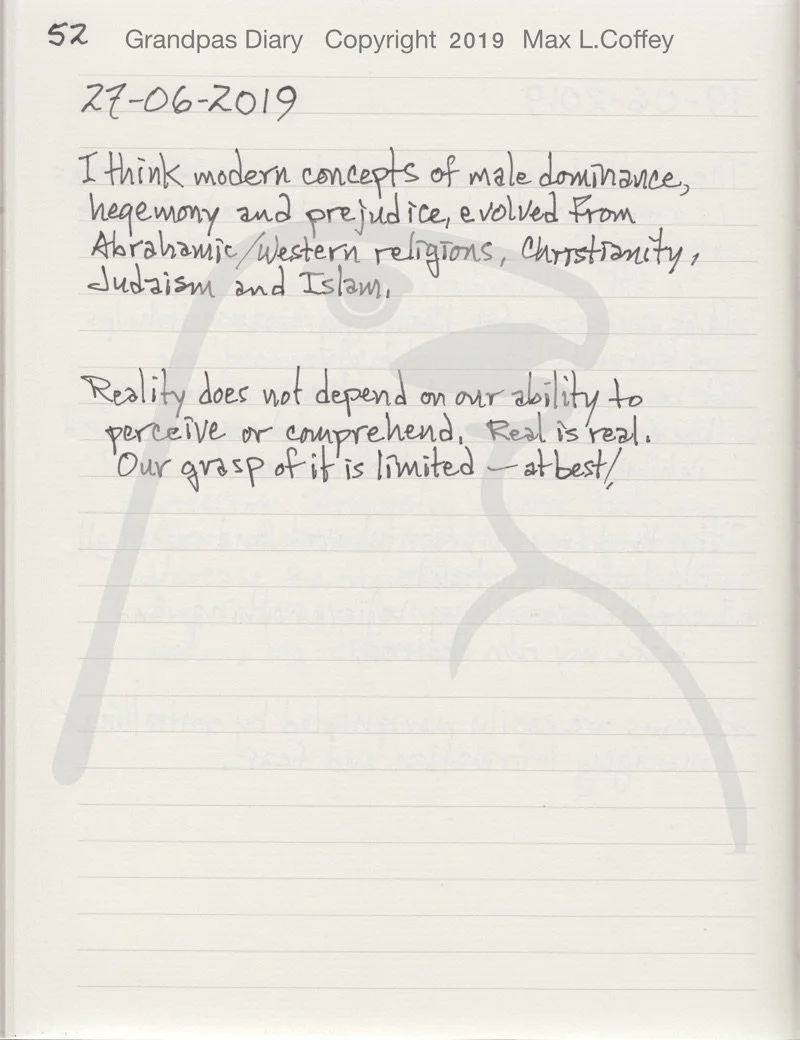 52 Grandpas Diary Copyright 2019 Max L.Coffey
27-06-2019
I think modern concepts of male dominance,
hegemony and prejudice, evolved from
Abrahamic/Western religions, Christianity,
Judaism and Islam.
Reality does not depend on our ability to
perceive or comprehend. Real is real.
Our grasp of it is limited — at best!